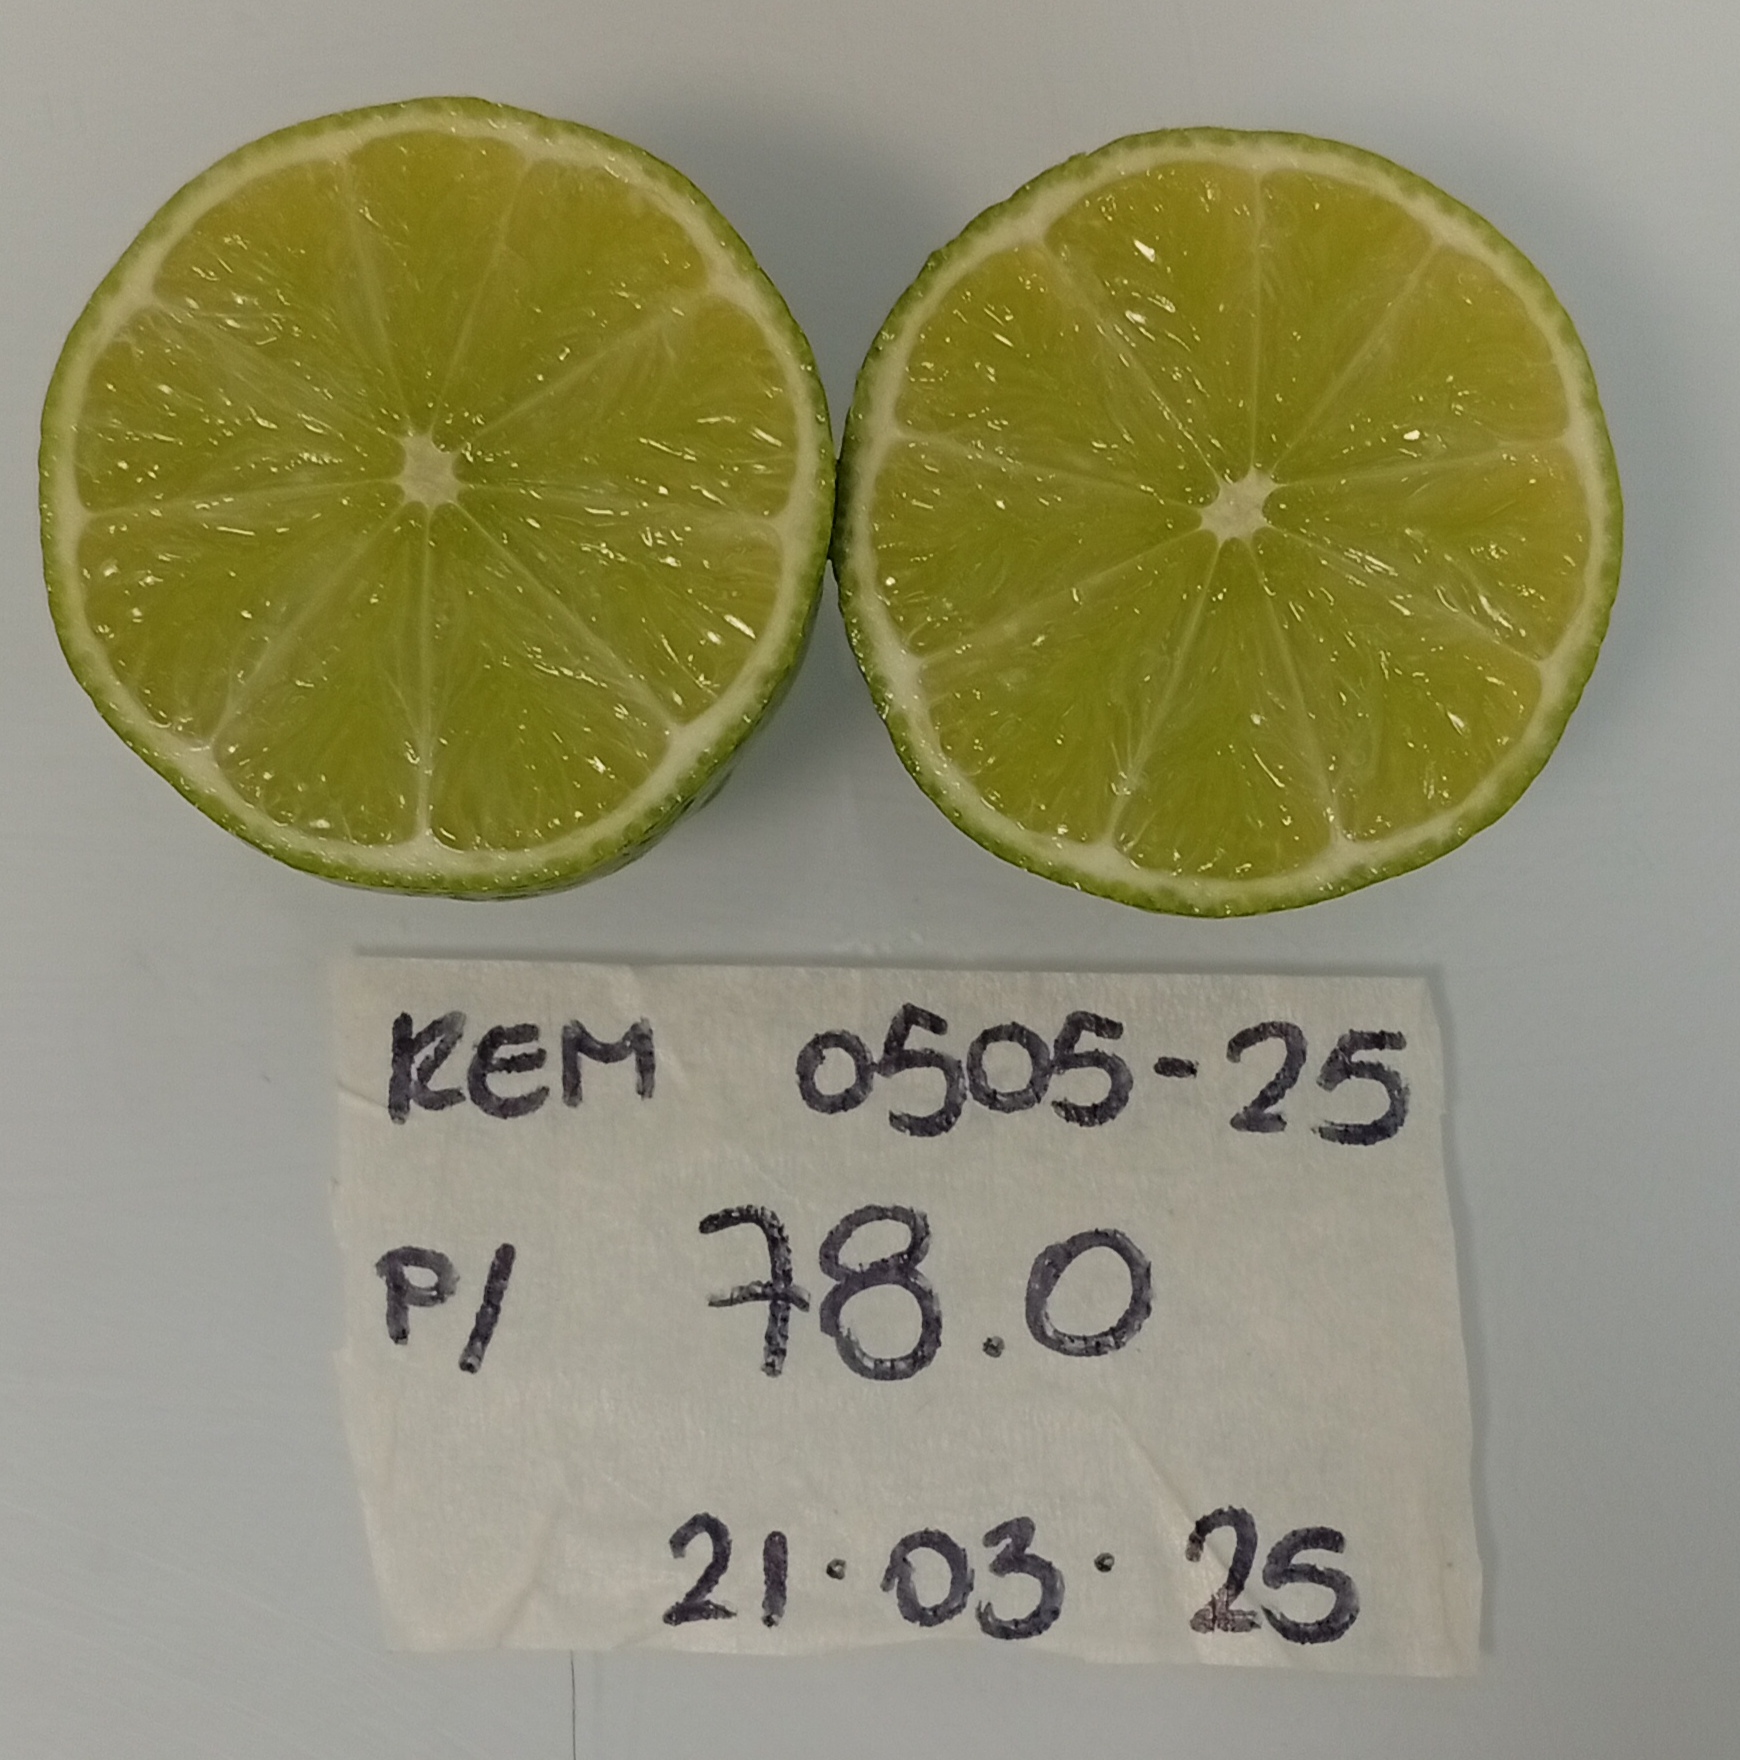 REM 0505-25
P/ 78.0
21.03.25